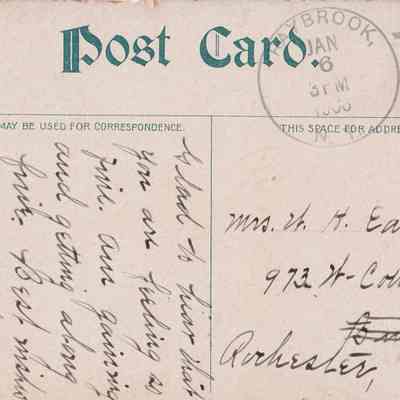 Post Card.
AYBROOK,
JAN
6
3 PM
N.Y.
MAY BE USED FOR CORRESPONDENCE.
THIS SPACE FOR ADDRE
Glad to hear that
you are feeling so
fine. Am gaining
and getting along
fine. Best wishe
Mrs. W. H. Ea
973 W-Col
Rochester,